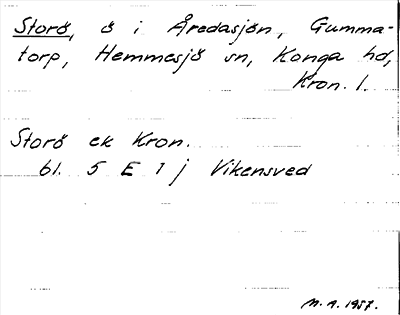 Storö, ö i Åredasjön, Gumma-
torp, Hemmesjö sn, Konga hd,
Kron. l.
Storö ek Kron.
bl. 5 E 1 j Vikensved
M. A. 1957.